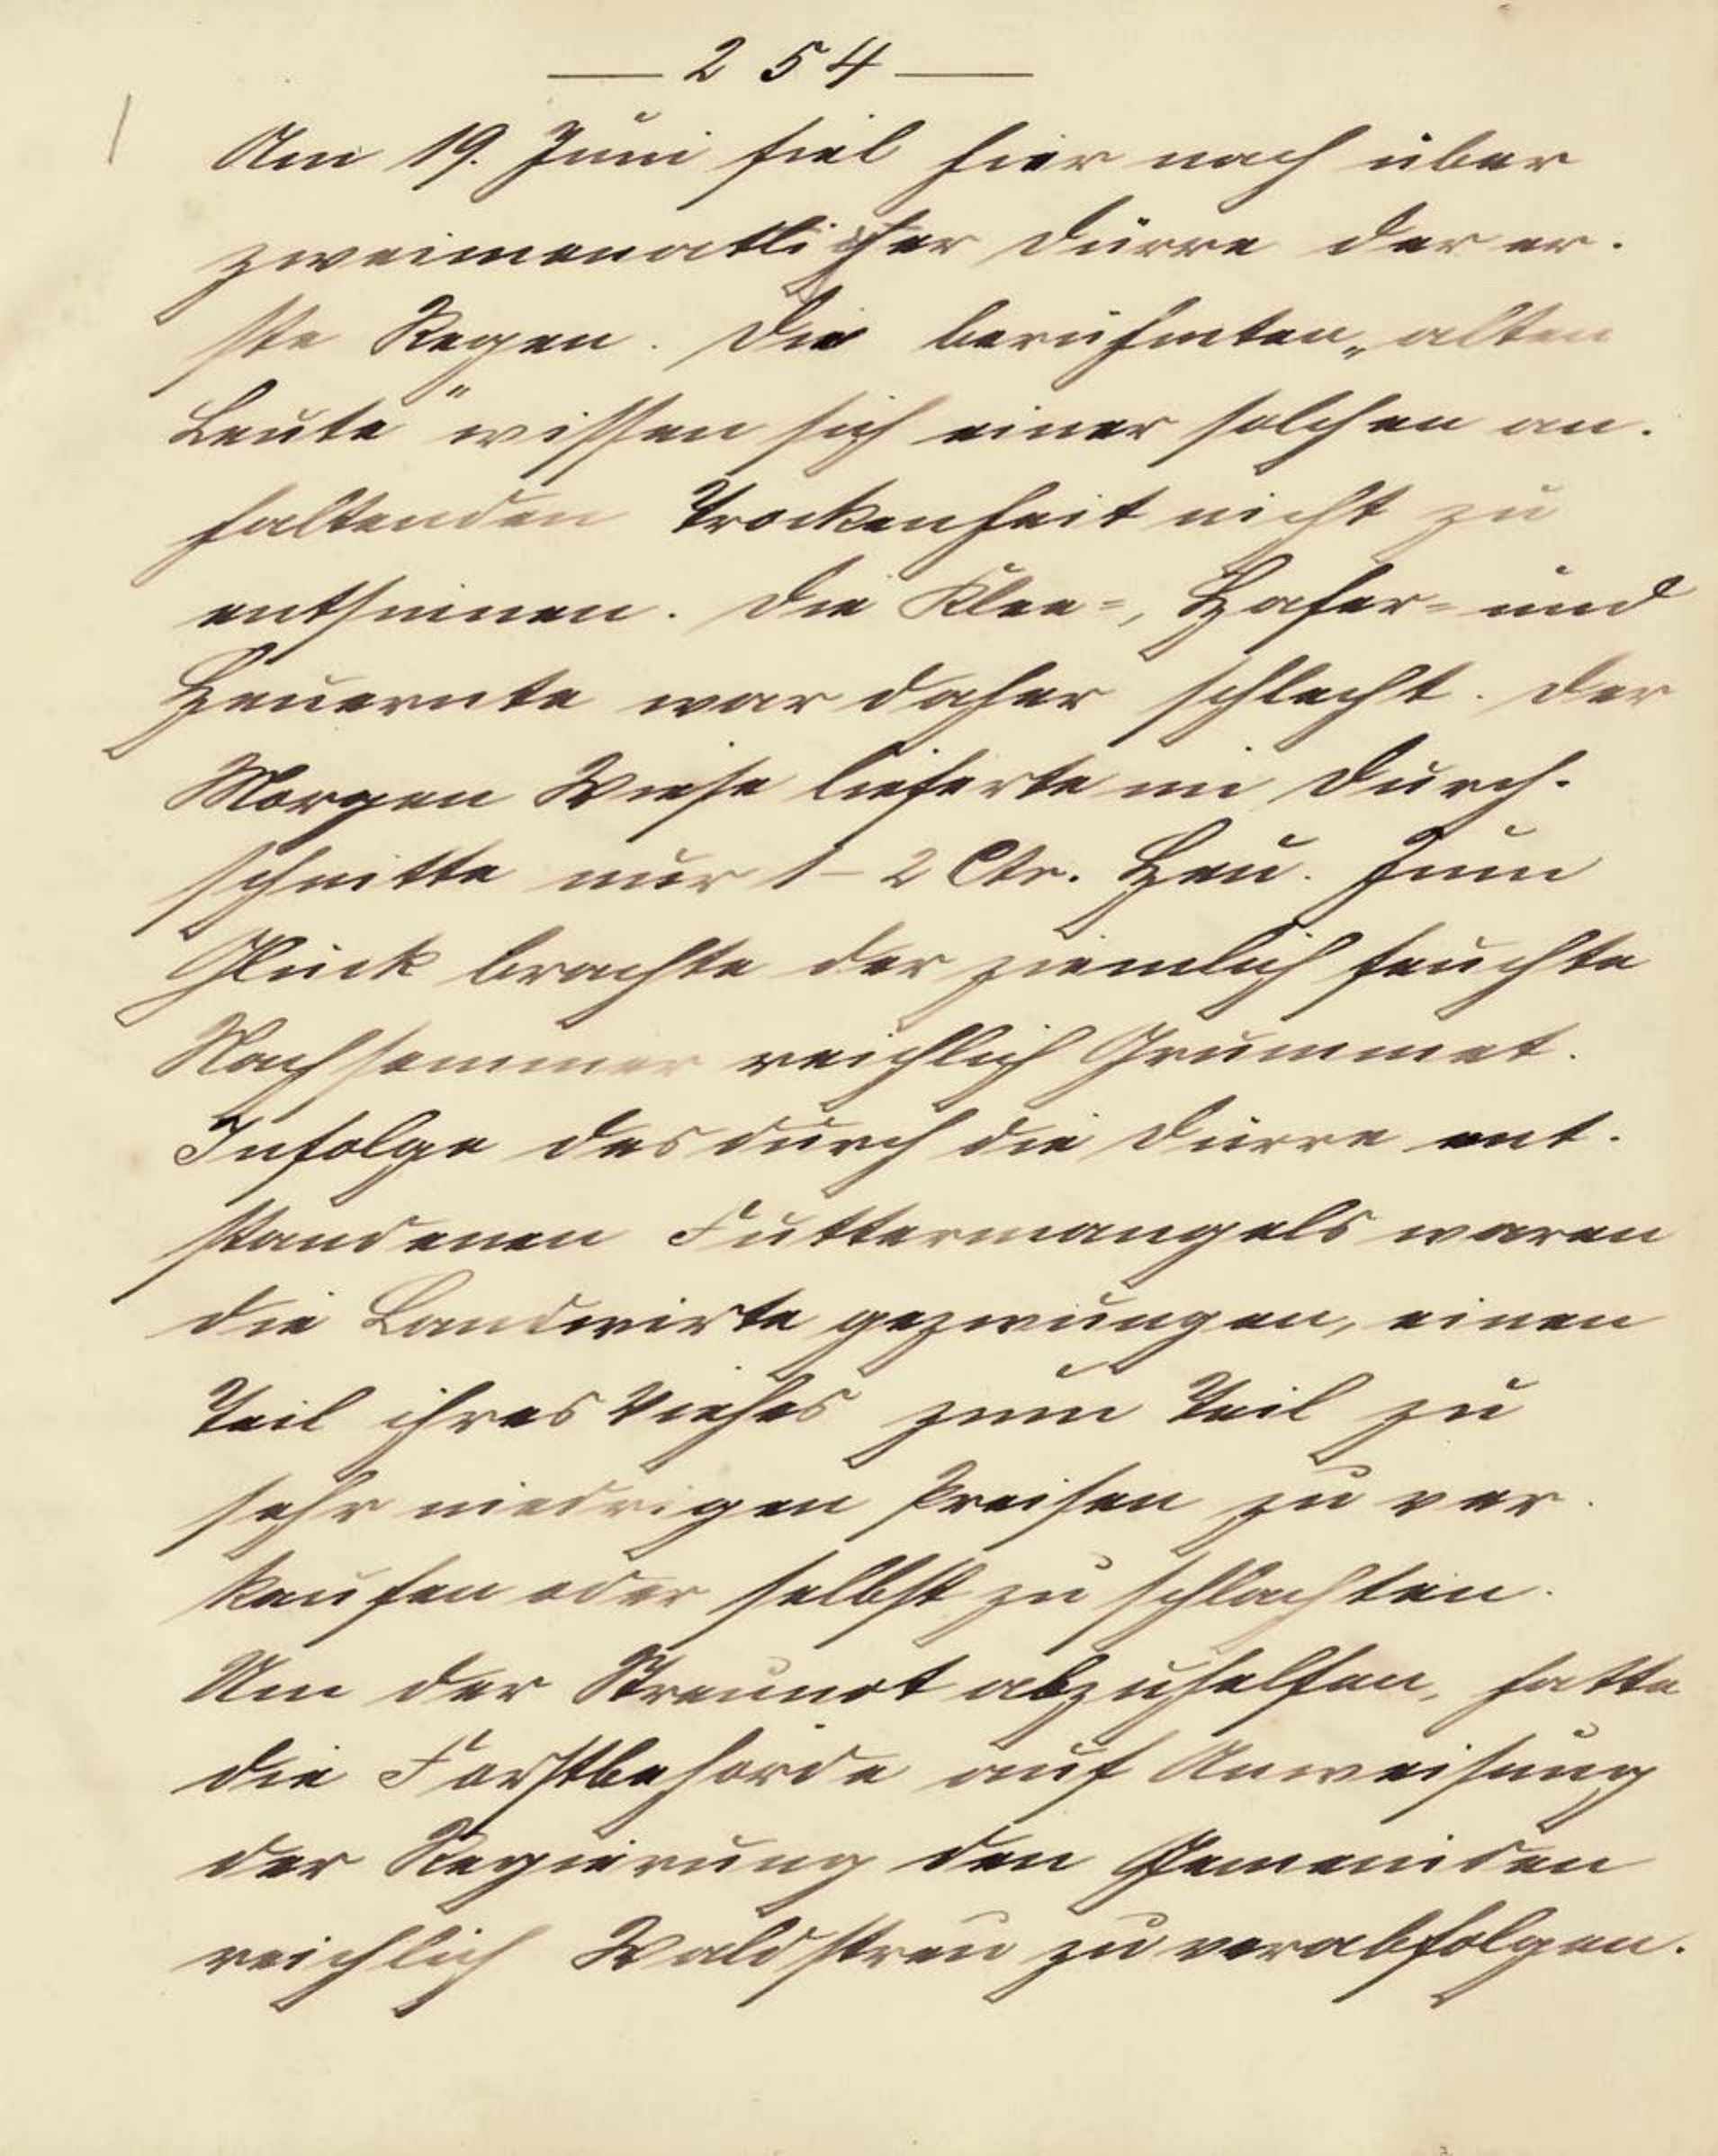 — 254 —
Am 19. Juni fiel hier nach über
zweimonatlicher Dürre der er-
ste Regen. Die berühmten „alten
Leute" wissen sich einer solchen an-
haltenden Trockenheit nicht zu
entsinnen. Die Klee-, Hafer- und
Heuernte war daher schlecht. Der
Morgen Wiese lieferte im Durch-
schnitte nur 1-2 Ctr. Heu. Zum
Glück brachte der ziemlich feuchte
Nachsommer reichlich Grummet.
Infolge des durch die Dürre ent-
standenen Futtermangels waren
die Landwirte gezwungen, einen
Teil ihres Viehes zum Teil zu
sehr niedrigen Preisen zu ver-
kaufen oder selbst zu schlachten.
Um der Streunot abzuhelfen, hatte
die Forstbehörde auf Anweisung
der Regierung den Gemeinden
reichlich Waldstreu zu verabfolgen.